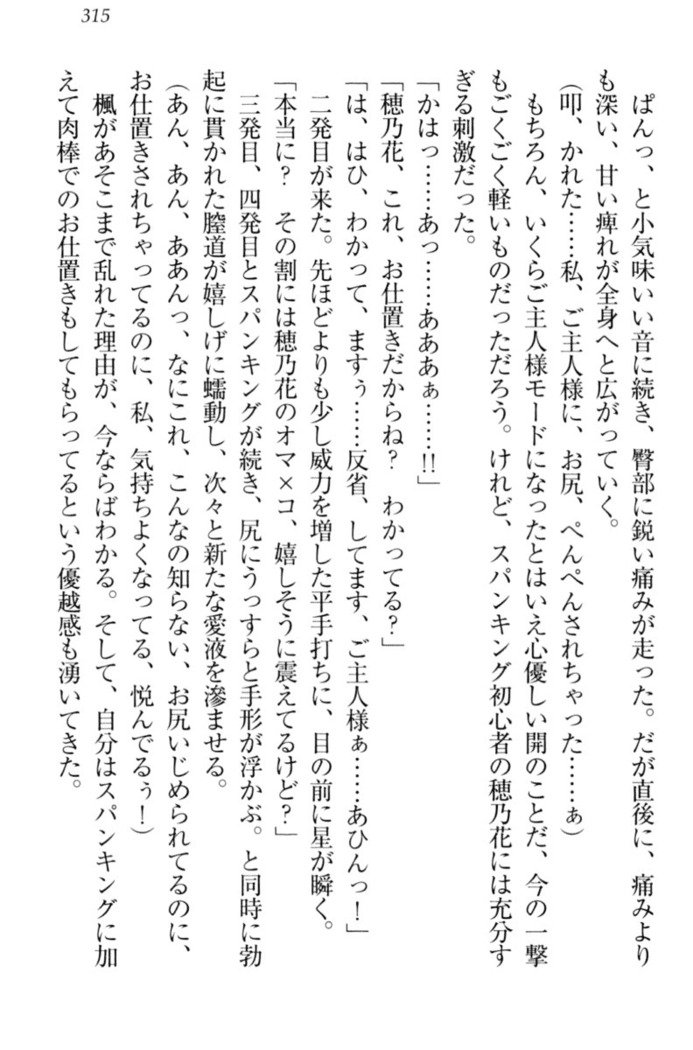 315
ぱんっ、と小気味いい音に続き、臀部に鋭い痛みが走った。だが直後に、痛みより
も深い、甘い痺れが全身へと広がっていく。
(叩、かれた……私、ご主人様に、お尻、ぺんぺんされちゃった……ぁ)
もちろん、いくらご主人様モードになったとはいえ心優しい開のことだ、今の一撃
もごくごく軽いものだっただろう。けれど、スパンキング初心者の穂乃花には充分す
ぎる刺激だった。
「かはっ……あっ……あああぁ……!!」
「穂乃花、これ、お仕置きだからね? わかってる?」
「は、はひ、わかって、ますぅ……反省、してます、ご主人様ぁ……あひんっ!」
二発目が来た。先ほどよりも少し威力を増した平手打ちに、目の前に星が瞬く。
「本当に? その割には穂乃花のオマ×コ、嬉しそうに震えてるけど?」
三発目、四発目とスパンキングが続き、尻にうっすらと手形が浮かぶ。と同時に勃
起に貫かれた膣道が嬉しげに蠕動し、次々と新たな愛液を滲ませる。
(あん、あん、ああんっ、なにこれ、こんなの知らない、お尻いじめられてるのに、
お仕置きされちゃってるのに、私、気持ちよくなってる、悦んでるぅ!)
楓があそこまで乱れた理由が、今ならばわかる。そして、自分はスパンキングに加
えて肉棒でのお仕置きもしてもらってるという優越感も湧いてきた。